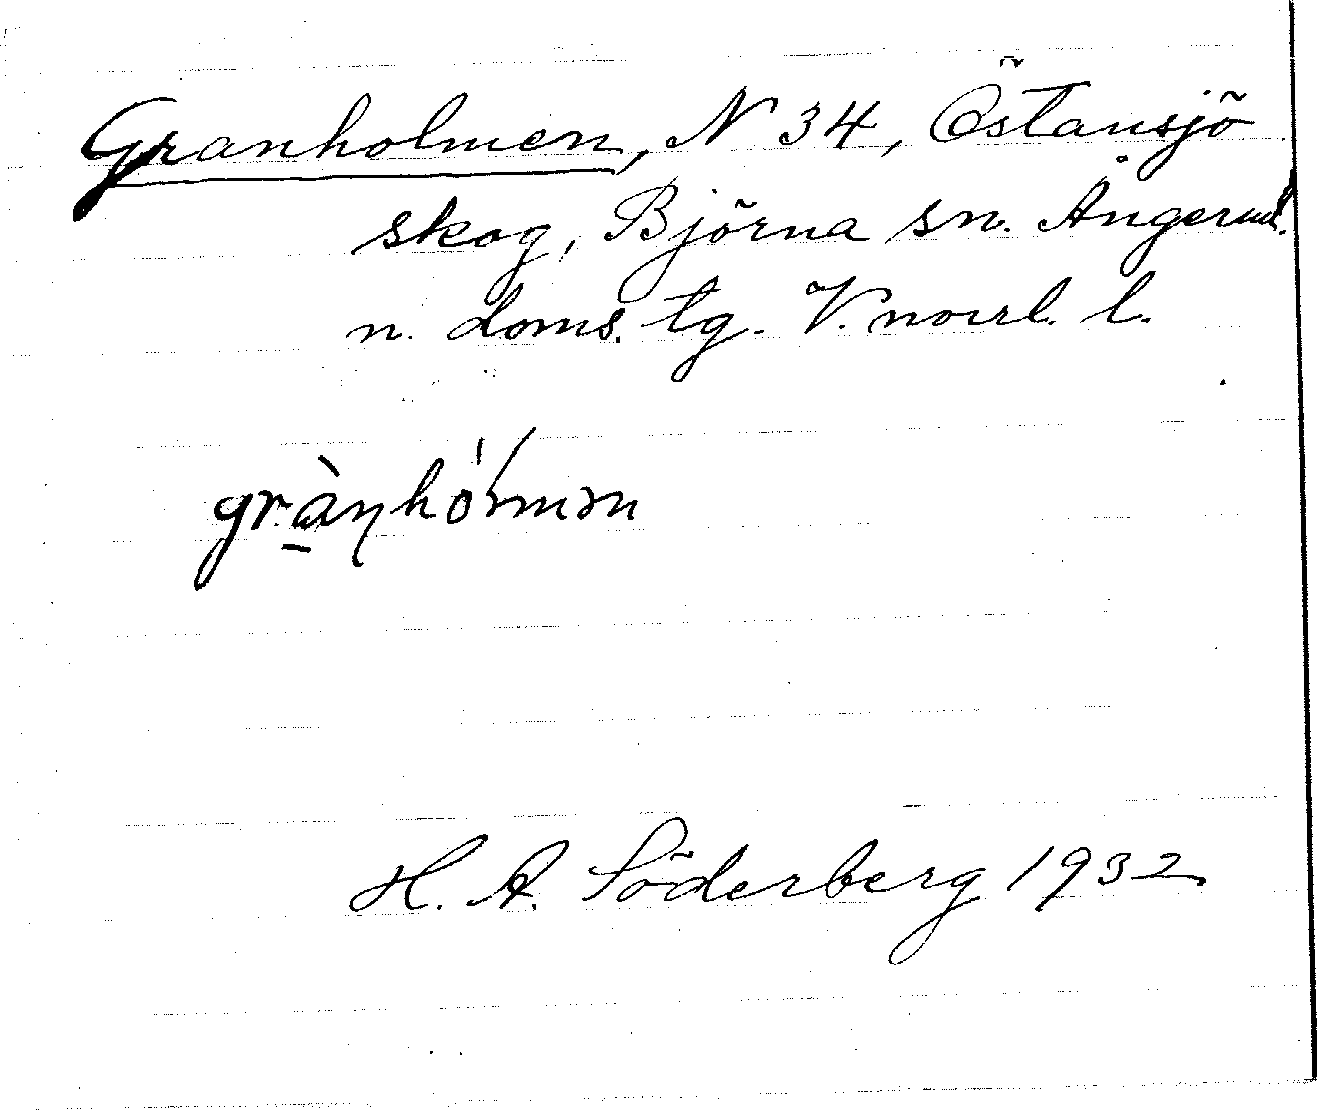 Granholmen, N 34, Östansjö
skog, Björna sn. Ångerml.
n. doms. tg. V. norrl. l.
grànhólmən
H. A. Söderberg 1932